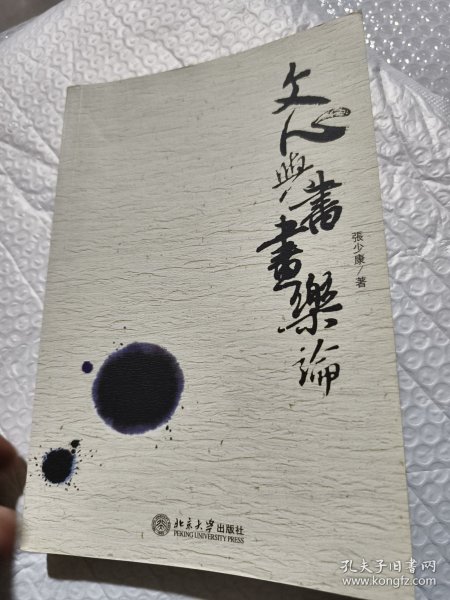 文心與書畫樂論
張少康/著
北京大学出版社
PEKING UNIVERSITY PRESS
孔夫子旧书网
www.kongfz.com